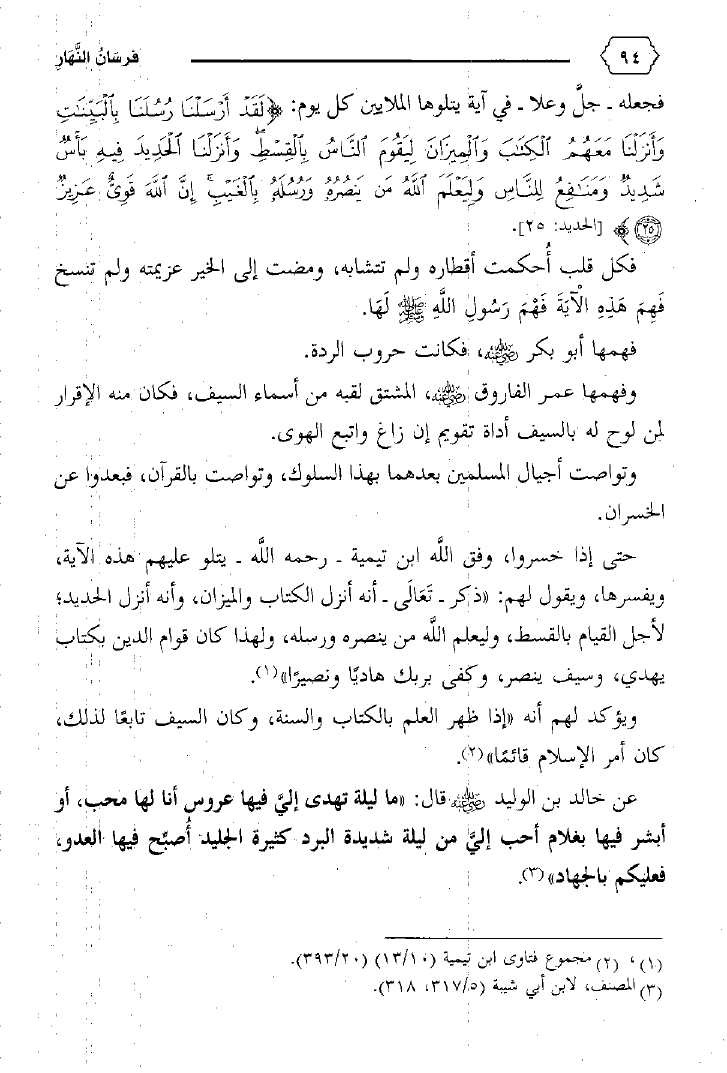 ٩٤
فرسَانُ النَّهَارِ
فجعله ـ جلَّ وعلا ـ في آية يتلوها الملايين كل يوم: ﴿لَقَدْ أَرْسَلْنَا رُسُلَنَا بِالْبَيِّنَٰتِ
وَأَنزَلْنَا مَعَهُمُ الْكِتَٰبَ وَالْمِيزَانَ لِيَقُومَ النَّاسُ بِالْقِسْطِ ۖ وَأَنزَلْنَا الْحَدِيدَ فِيهِ بَأْسٌ
شَدِيدٌ وَمَنَٰفِعُ لِلنَّاسِ وَلِيَعْلَمَ اللَّهُ مَن يَنصُرُهُ وَرُسُلَهُ بِالْغَيْبِ ۚ إِنَّ اللَّهَ قَوِيٌّ عَزِيزٌ
(٢٥)﴾ [الحديد: ٢٥].
فكل قلب أُحكمت أقطاره ولم تتشابه، ومضت إلى الخير عزيمته ولم تنسخ
فَهِمَ هَذِهِ الْآيَةَ فَهْمَ رَسُولِ اللَّهِ ﷺ لَهَا.
فهمها أبو بكر رضي الله عنه، فكانت حروب الردة.
وفهمها عمر الفاروق رضي الله عنه، المشتق لقبه من أسماء السيف، فكان منه الإقرار
لمن لوح له بالسيف أداة تقويم إن زاغ واتبع الهوى.
وتواصت أجيال المسلمين بعدهما بهذا السلوك، وتواصت بالقرآن، فبعدوا عن
الخسران.
حتى إذا خسروا، وفق اللَّه ابن تيمية ـ رحمه اللَّه ـ يتلو عليهم هذه الآية،
ويفسرها، ويقول لهم: «ذكر ـ تَعَالَى ـ أنه أنزل الكتاب والميزان، وأنه أنزل الحديد؛
لأجل القيام بالقسط، وليعلم اللَّه من ينصره ورسله، ولهذا كان قوام الدين بكتاب
يهدي، وسيف ينصر، وكفى بربك هاديًا ونصيرًا»(١).
ويؤكد لهم أنه «إذا ظهر العلم بالكتاب والسنة، وكان السيف تابعًا لذلك،
كان أمر الإسلام قائمًا»(٢).
عن خالد بن الوليد رضي الله عنه قال: «ما ليلة تهدى إليَّ فيها عروس أنا لها محب، أو
أبشر فيها بغلام أحب إليَّ من ليلة شديدة البرد كثيرة الجليد أُصبِّح فيها العدو،
فعليكم بالجهاد»(٣).
(١)، (٢) مجموع فتاوى ابن تيمية (١٣/١٠) (٣٩٣/٢٠).
(٣) المصنف، لابن أبي شيبة (٣١٧/٥، ٣١٨).